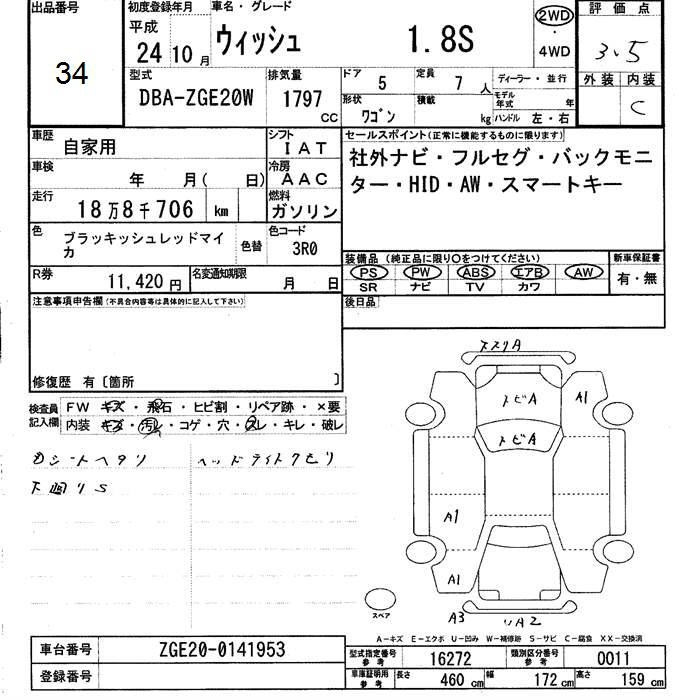 出品番号
34
初度登録年月
平成
24 10 月
車名・グレード
ウィッシュ 1.8S
2WD
・
4WD
評価点
3.5
外装 内装
C
型式
DBA-ZGE20W
排気量
1797
CC
ドア 5
定員 7 人
ディーラー・並行
モデル年式 年
形状 ワゴン
積載 kg
ハンドル 左・右
車歴
自家用
シフト
IAT
車検
年 月( 日)
冷房
AAC
走行
18万8千706 km
燃料
ガソリン
色
ブラッキッシュレッドマイカ
色替
色コード
3R0
R券
11,420 円
名変通知期限
月 日
セールスポイント(正常に機能するものに限ります)
社外ナビ・フルセグ・バックモニ
ター・HID・AW・スマートキー
装備品 (純正品に限り○をつけてください)
新車保証書
PS PW ABS エアB AW
SR ナビ TV カワ
有・無
後日品
注意事項申告欄(不具合内容等は具体的に記入して下さい)
修復歴 有〔箇所 〕
検査員記入欄
FW キズ・飛石・ヒビ割・リペア跡・×要
内装 キズ・汚レ・コゲ・穴・スレ・キレ・破レ
シートヘタリ ヘッドライトクモリ
下廻りS
ススリA
トビA
トビA
A1
A1
A1
A3
リA2
スペア
A-キズ E-エクボ U-凹み W-補修跡 S-サビ C-腐食 XX-交換済
車台番号 ZGE20-0141953
登録番号
型式指定番号 参考 16272
類別区分番号 参考 0011
車庫証明用 参考
長さ 460 cm
幅 172 cm
高さ 159 cm